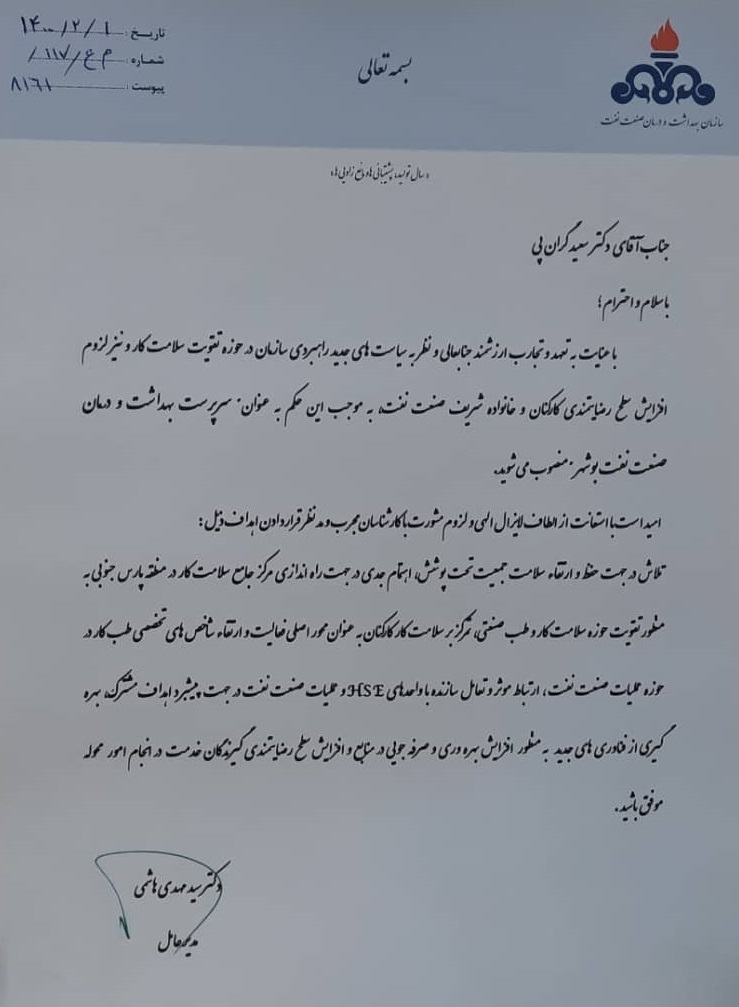 بسمه تعالی
سازمان بهداشت و درمان صنعت نفت
تاریخ: ۱۴۰۰/۲/۱
شماره: م ع/۱۱۷/
پیوست: ۸۱۶۱
«سال تولید، پشتیبانی ها و مانع زدایی ها»
جناب آقای دکتر سعید گران پی
با سلام و احترام؛
با عنایت به تعهد و تجارب ارزشمند جنابعالی و نظر به سیاست های جدید راهبردی سازمان در حوزه تقویت سلامت کار و نیز لزوم
افزایش سطح رضایتمندی کارکنان و خانواده شریف صنعت نفت، به موجب این حکم به عنوان "سرپرست بهداشت و درمان
صنعت نفت بوشهر" منصوب می شوید.
امید است با استعانت از الطاف لایزال الهی و لزوم مشورت با کارشناسان مجرب و مد نظر قرار دادن اهداف ذیل:
تلاش در جهت حفظ و ارتقاء سلامت جمعیت تحت پوشش، اهتمام جدی در جهت راه اندازی مرکز جامع سلامت کار در منطقه پارس جنوبی به
منظور تقویت حوزه سلامت کار و طب صنعتی، تمرکز بر سلامت کار کارکنان به عنوان محور اصلی فعالیت و ارتقاء شاخص های تخصصی طب کار در
حوزه عملیات صنعت نفت، ارتباط موثر و تعامل سازنده با واحدهای HSE و عملیات صنعت نفت در جهت پیشبرد اهداف مشترک، بهره
گیری از فناوری های جدید به منظور افزایش بهره وری و صرفه جویی در منابع و افزایش سطح رضایتمندی گیرندگان خدمت در انجام امور محوله
موفق باشید.
دکتر سید مهدی هاشمی
مدیرعامل